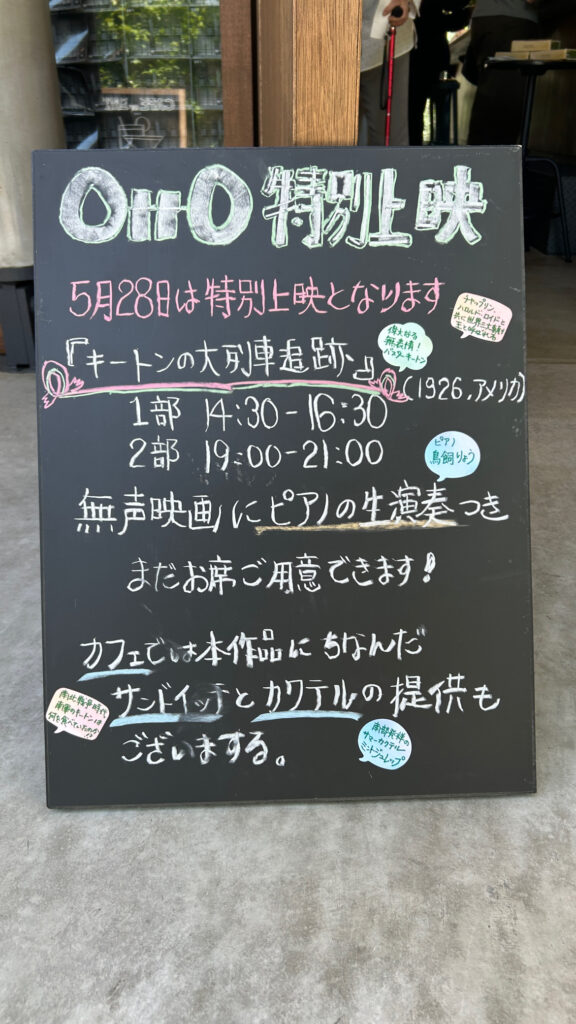 OttO 特別上映
5月28日は特別上映となります
チャップリン、
ハロルド・ロイドと
共に世界三大喜劇
王と呼ばれる
偉大なる
無表情!
バスターキートン
『キートンの大列車追跡』
(1926.アメリカ)
1部 14:30-16:30
2部 19:00-21:00
ピアノ
鳥飼りょう
無声映画にピアノの生演奏つき
まだお席ご用意できます!
カフェでは本作品にちなんだ
サンドイッチとカクテルの提供も
ございまする。
南北戦争時代
南軍のキートンは
何を食べていたのか
南部発祥の
サマーカクテル
ミントジュレップ